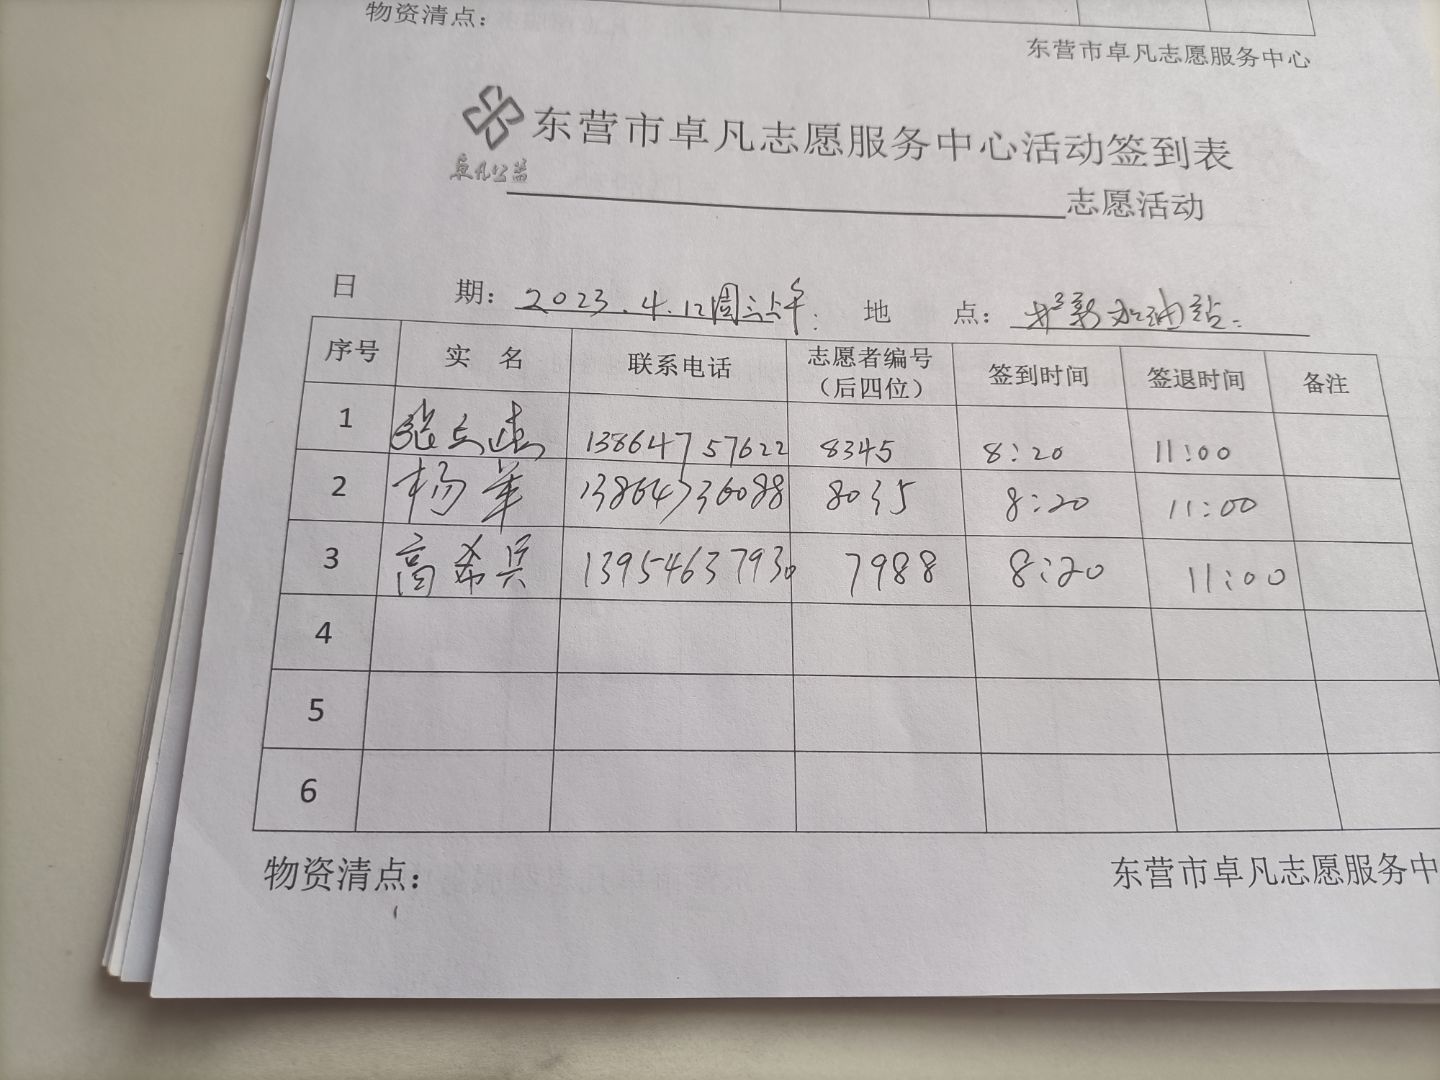 物资清点：
东营市卓凡志愿服务中心
东营市卓凡志愿服务中心活动签到表
卓凡公益
志愿活动
日 期：2023.4.12周三上午. 地 点：加油站.
序号 实 名 联系电话 志愿者编号（后四位） 签到时间 签退时间 备注
1 张 13864757622 8345 8:20 11:00
2 杨军 13864736088 8035 8:20 11:00
3 高希兵 13954637930 7988 8:20 11:00
4
5
6
物资清点：
东营市卓凡志愿服务中